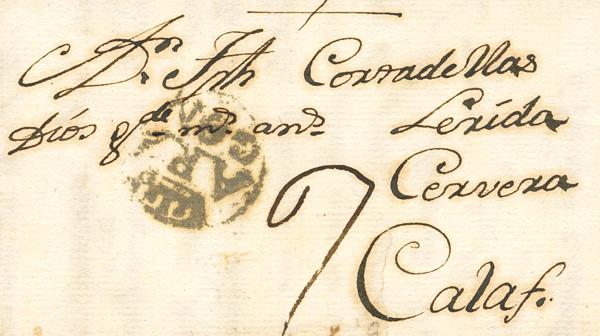 A Dn. Jph Cortadellas
Dios gde. ms. ans. Lérida
Cervera
7 Calaf.